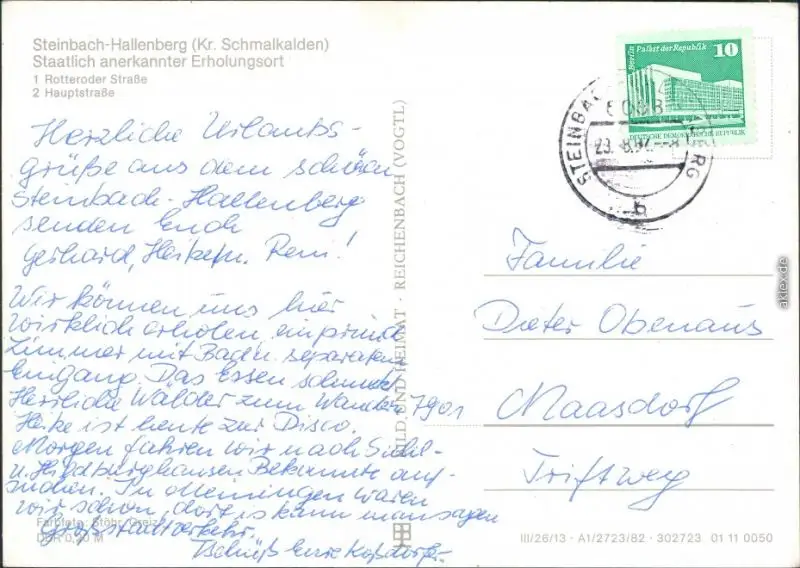 Steinbach-Hallenberg (Kr. Schmalkalden)
Staatlich anerkannter Erholungsort
1 Rotteroder Straße
2 Hauptstraße
Herzliche Urlaubs-
grüße aus dem schönen
Steinbach-Hallenberg
senden Euch
Gerhard, Heike u. Reni!
Wir können uns hier
wirklich erholen, ein prima
Zimmer mit Bad u. separaten
Eingang. Das Essen schmeckt
Herrliche Wälder zum Wandern
Heike ist heute zur Disco.
Morgen fahren wir nach Suhl
u. Hildburghausen Bekannte auf-
suchen. In Meiningen waren
wir schon, dort ist kann man sagen
Großstadtverkehr.
Tschüß Eure Koßdorfer
Farbfoto: Stöhr, Greiz
DDR 0,20 M
BILD UND HEIMAT · REICHENBACH (VOGTL)
Berlin Palast der Republik
10
DEUTSCHE DEMOKRATISCHE REPUBLIK
23. 8. -8
b
Familie
Dieter Obenaus
7901 Maasdorf
Triftweg
III/26/13 · A1/2723/82 · 302723 01 11 0050
akpool.de